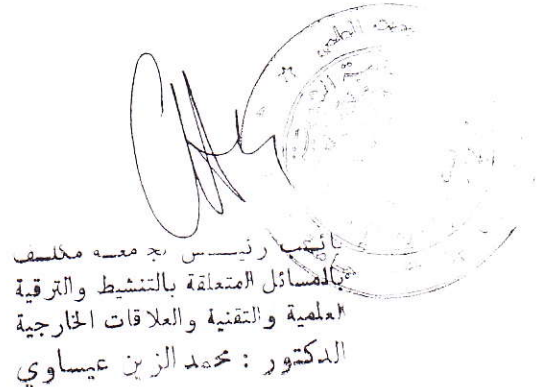 نائب رئيس الجامعة مكلف
بالمسائل المتعلقة بالتنشيط والترقية
العلمية والتقنية والعلاقات الخارجية
الدكتور : محمد الزين عيساوي